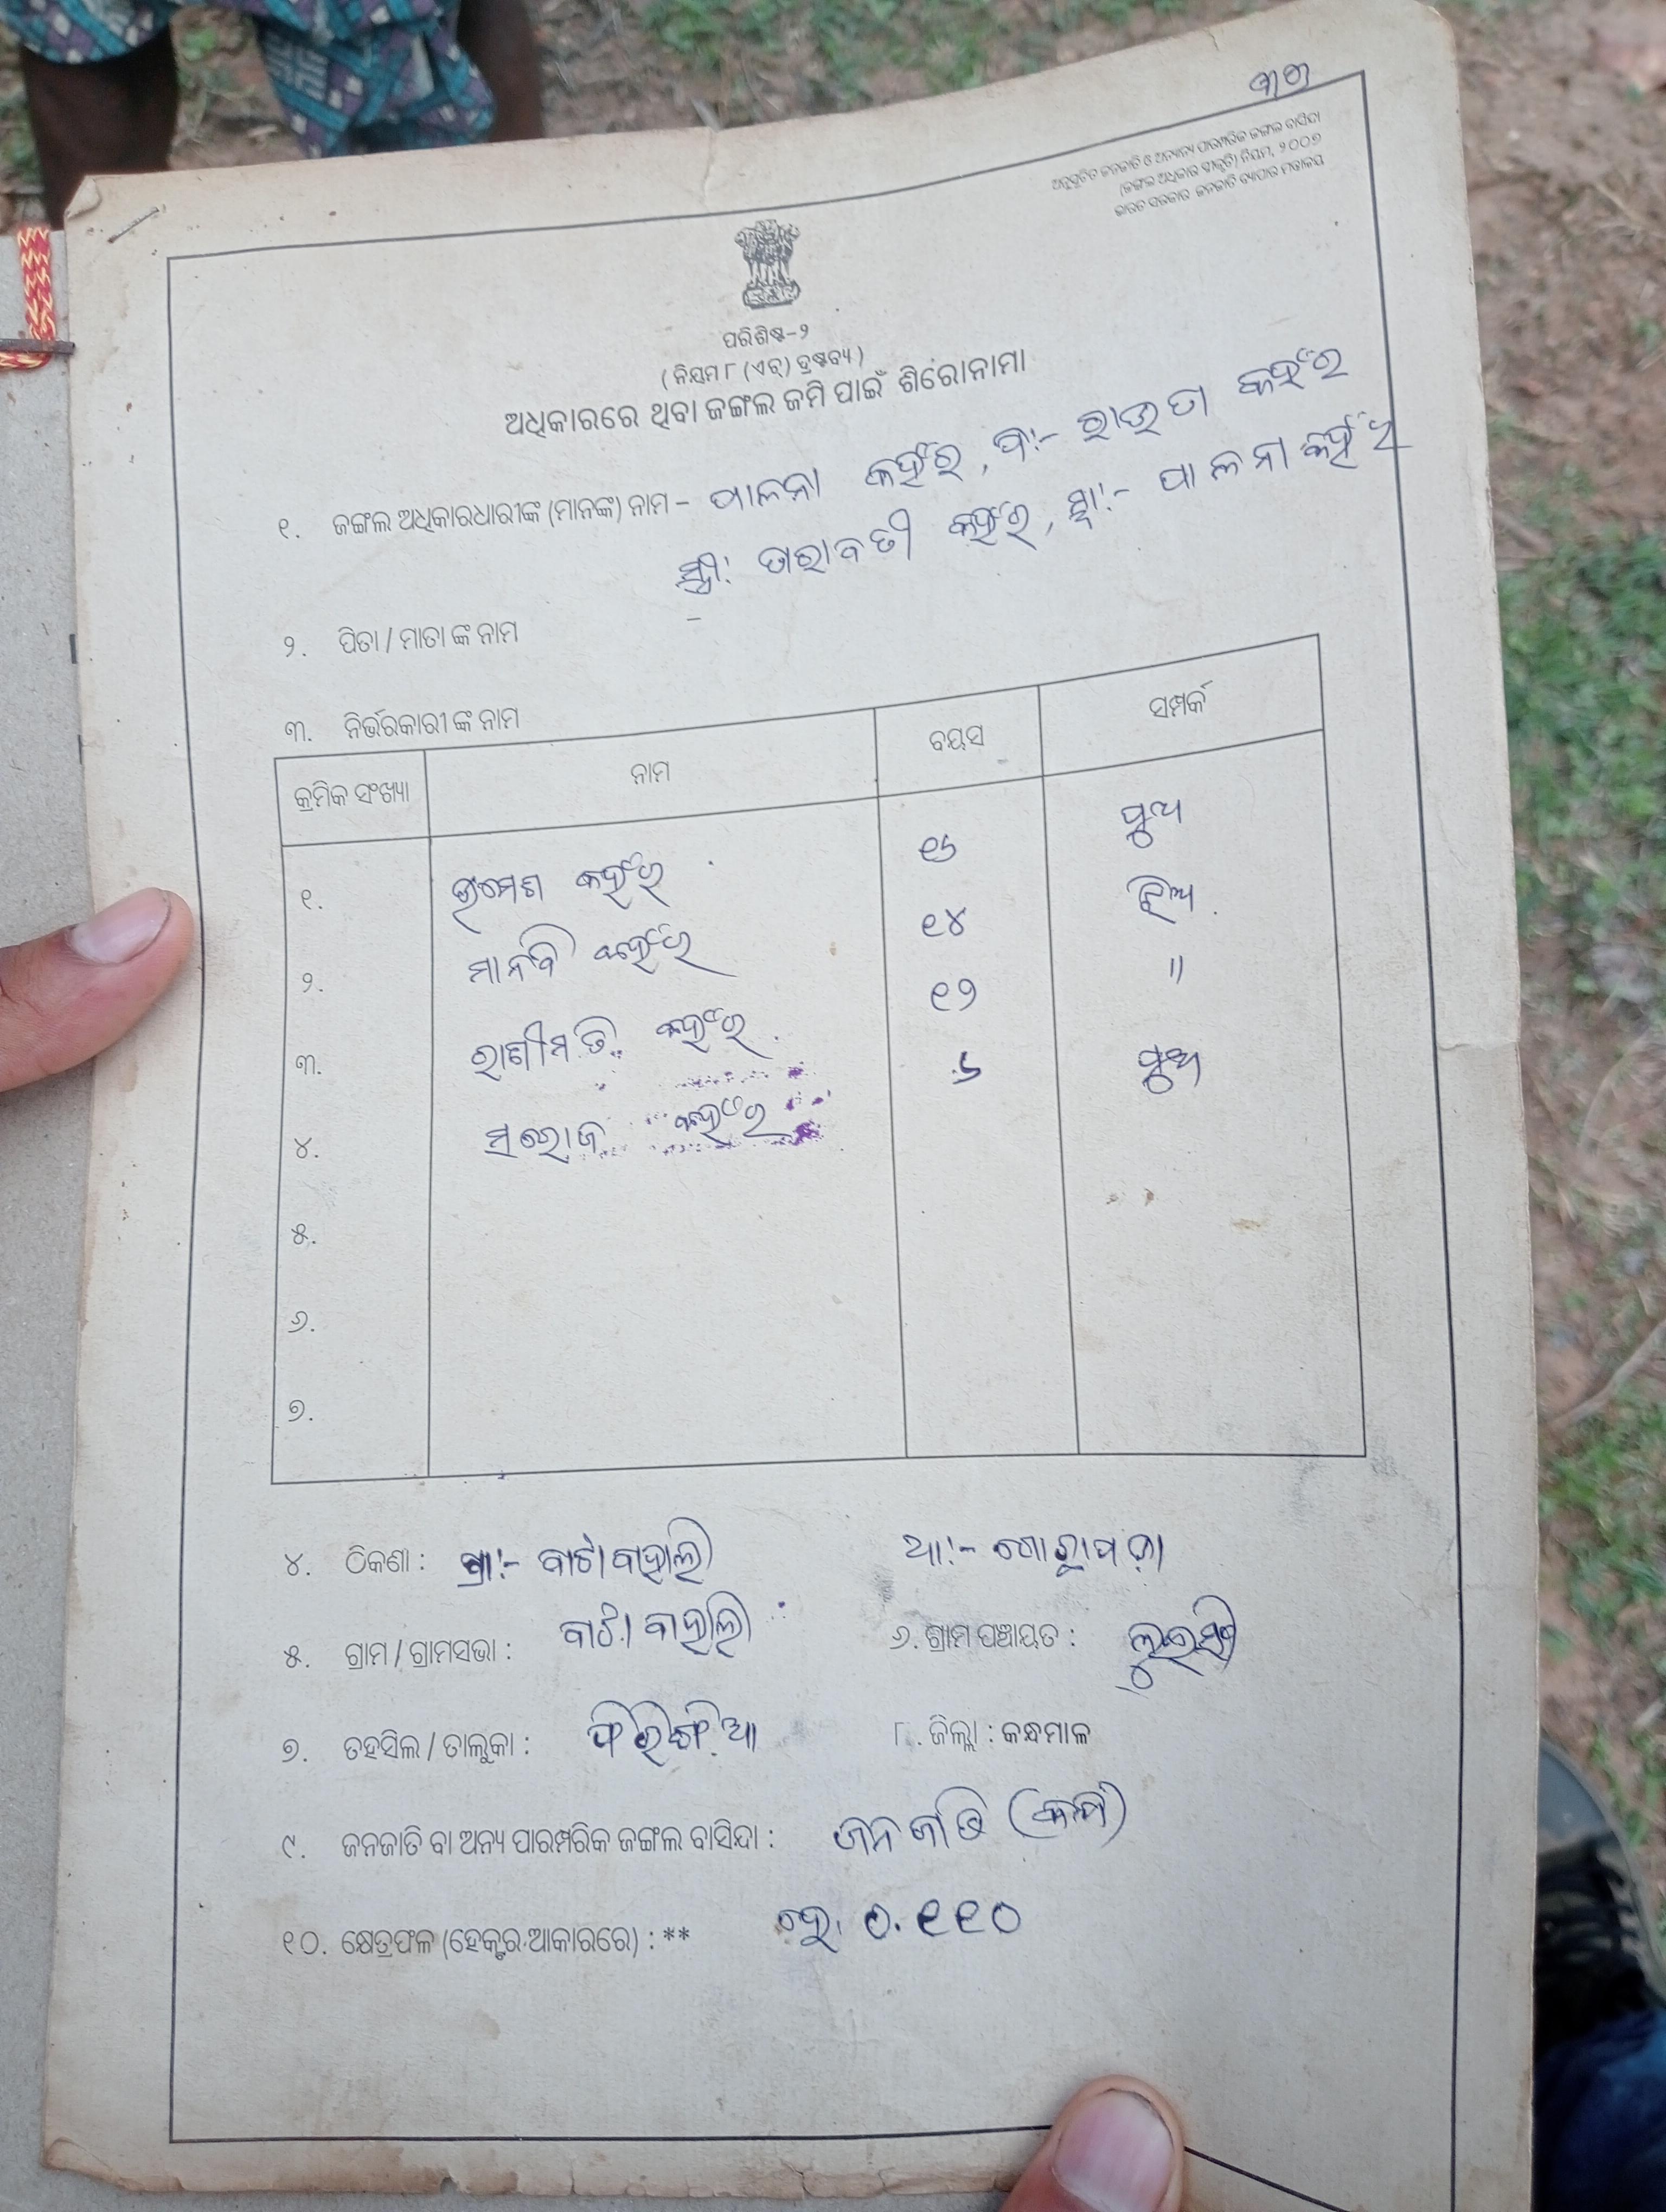 ୩୭
ଅନୁସୂଚିତ ଜନଜାତି ଓ ଅନ୍ୟାନ୍ୟ ପାରମ୍ପରିକ ଜଙ୍ଗଲ ବାସିନ୍ଦା
(ଜଙ୍ଗଲ ଅଧିକାର ସ୍ୱୀକୃତି) ନିୟମ, ୨୦୦୭
ଭାରତ ସରକାର ଜନଜାତି ବ୍ୟାପାର ମନ୍ତ୍ରାଳୟ
ପରିଶିଷ୍ଟ-୨
(ନିୟମ ୮ (ଏଚ୍) ଦ୍ରଷ୍ଟବ୍ୟ)
ଅଧିକାରରେ ଥିବା ଜଙ୍ଗଲ ଜମି ପାଇଁ ଶିରୋନାମା
୧. ଜଙ୍ଗଲ ଅଧିକାରଧାରୀଙ୍କ (ମାନଙ୍କ) ନାମ – ପାଳନା କହଁର, ପି:- ରାଉତା କହଁର
ସ୍ତ୍ରୀ: ତାରାବତୀ କହଁର, ସ୍ୱା:- ପାଳନା କହଁର
୨. ପିତା / ମାତା ଙ୍କ ନାମ
୩. ନିର୍ଭରକାରୀ ଙ୍କ ନାମ
କ୍ରମିକ ସଂଖ୍ୟା ନାମ ବୟସ ସମ୍ପର୍କ
୧. ଉମେଶ କହଁର ୧୬ ପୁଅ
୨. ମାନବି କହଁର ୧୪ ଝିଅ
୩. ରାଣୀମତି କହଁର ୧୨ "
୪. ସରୋଜ କହଁର ୬ ପୁଅ
୫.
୬.
୭.
୪. ଠିକଣା : ଗ୍ରା:- ବାଟାବାହାଲି ଥା:- ଗୋଛାପଡ଼ା
୫. ଗ୍ରାମ / ଗ୍ରାମସଭା : ବାଟାବାହାଲି ୬. ଗ୍ରାମ ପଞ୍ଚାୟତ :
୭. ତହସିଲ / ତାଲୁକା : ଫିରିଙ୍ଗିଆ ୮. ଜିଲ୍ଲା : କନ୍ଧମାଳ
୯. ଜନଜାତି ବା ଅନ୍ୟ ପାରମ୍ପରିକ ଜଙ୍ଗଲ ବାସିନ୍ଦା : ଜନଜାତି (କନ୍ଧ)
୧୦. କ୍ଷେତ୍ରଫଳ (ହେକ୍ଟର ଆକାରରେ) : ** ହେ. ୦.୧୧୦